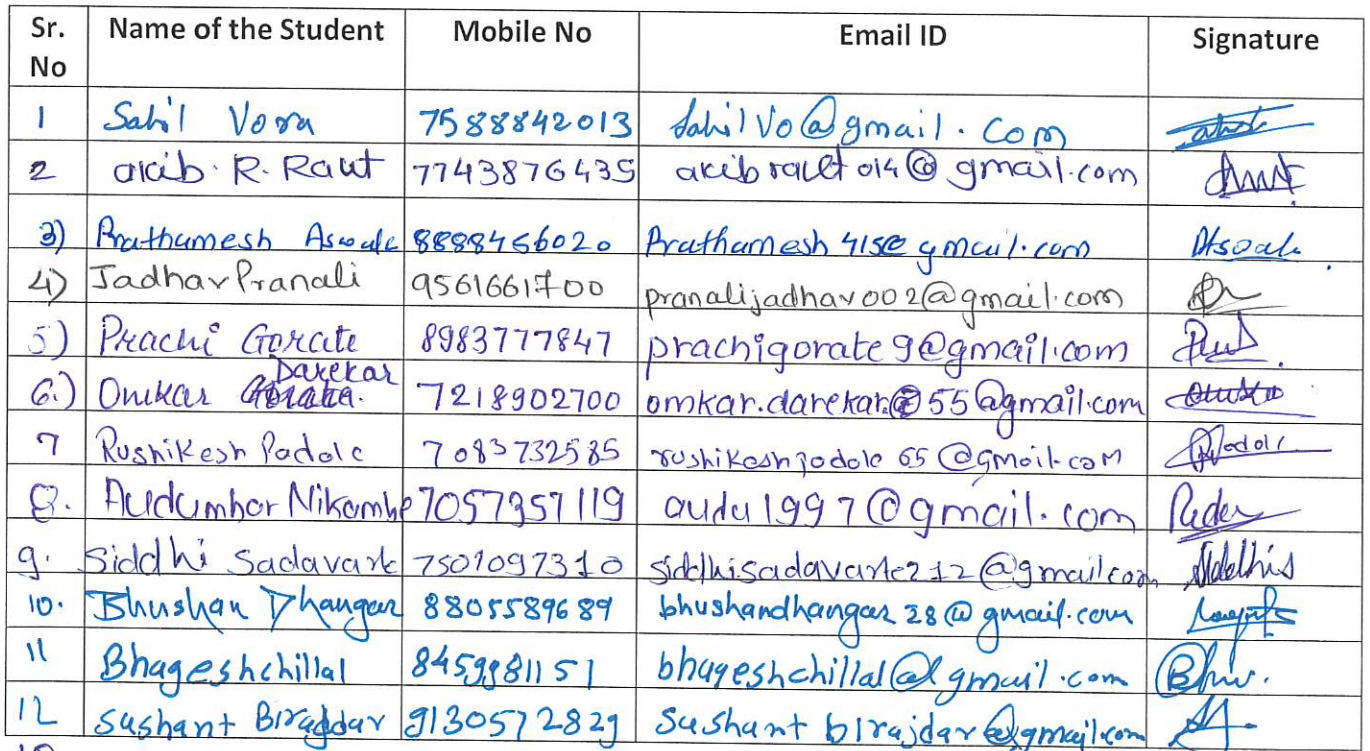 Sr. No Name of the Student Mobile No Email ID Signature
1 Sahil Vora 7588842013 SahilVo@gmail.com
2 akib. R. Raut 7743876435 akibraut014@gmail.com
3) Prathamesh Aswale 8888456020 Prathamesh415@gmail.com
4) Jadhav Pranali 9561661700 pranalijadhav002@gmail.com
5) Prachi Gorate 8983777847 prachigorate9@gmail.com
6.) Omkar Darekar 7218902700 omkar.darekar55@gmail.com
7 Rushikesh Padole 7083732585 rushikeshpadole65@gmail.com
8. Audumbar Nikambe 7057357119 audu1997@gmail.com
9. Siddhi Sadavarte 7507097310 siddhisadavarte212@gmail.com Siddhis
10. Bhushan Dhangar 8805589689 bhushandhangar28@gmail.com
11 Bhageshchillal 8459981151 bhageshchillal@gmail.com
12 Sushant Birajdar 9130572829 Sushantbirajdar@gmail.com